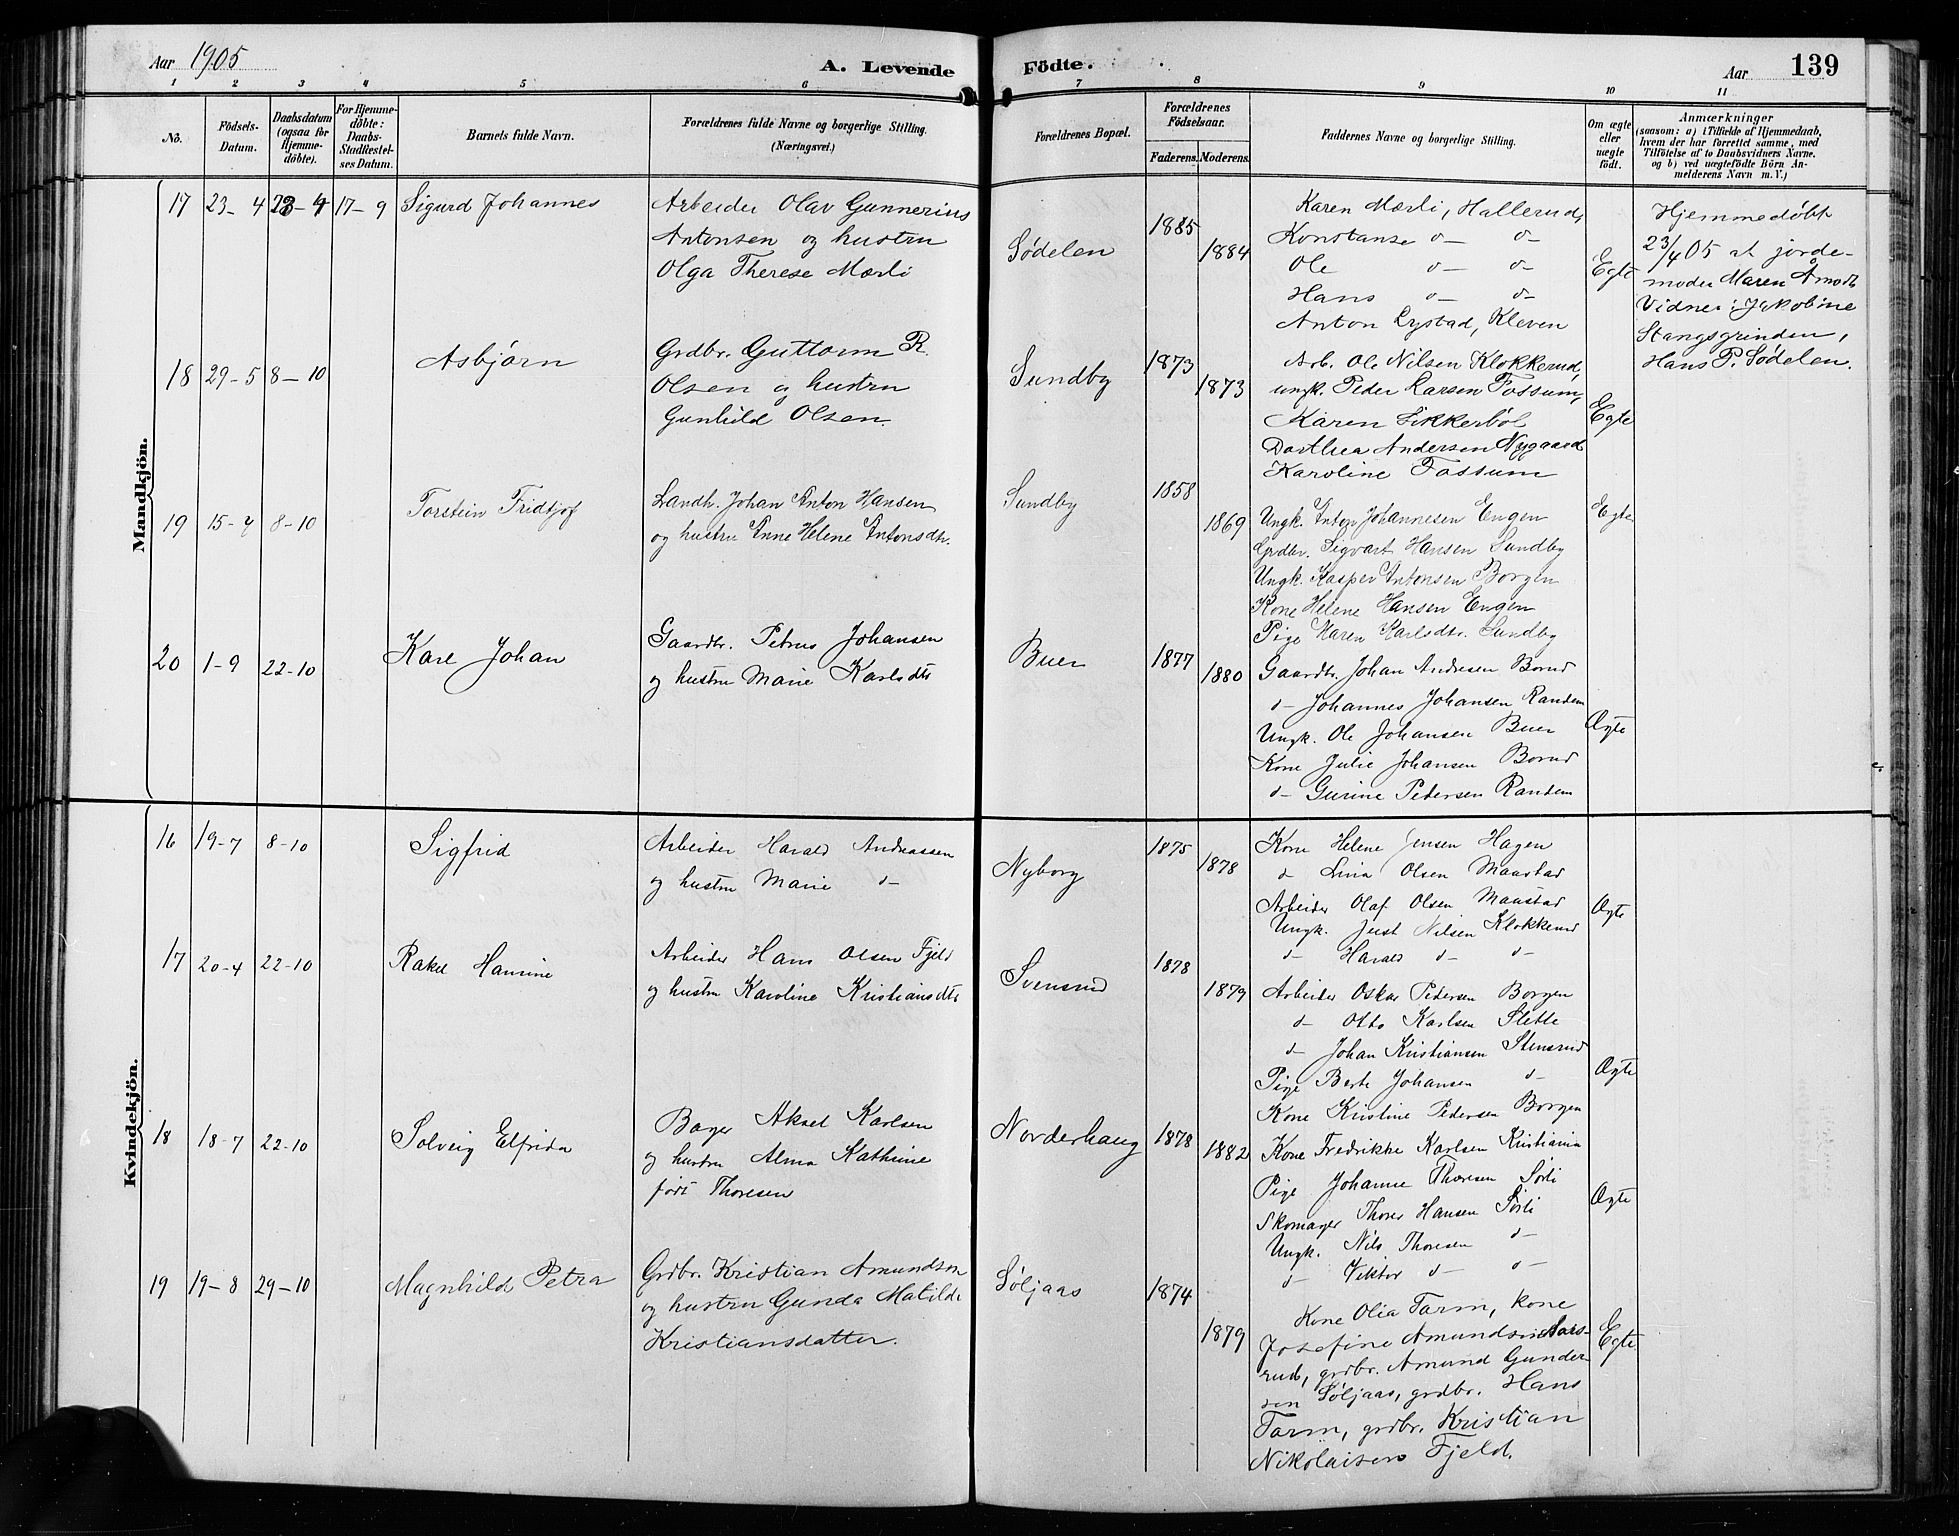 Aar 1905
A. Levende Födte.
Aar 139
1 2 3 4 5 6 7 8 9 10 11
No.
Födsels-
Datum.
Daabsdatum
(ogsaa for
Hjemme-
döbte).
For Hjemme-
döbte:
Daabs-
Stadfæstel-
ses Datum.
Barnets fulde Navn.
Forældrenes fulde Navne og borgerlige Stilling.
(Næringsvei.)
Forældrenes Bopæl.
Forældrenes
Födselsaar.
Faderens. Moderens.
Faddernes Navne og borgerlige Stilling.
Om ægte
eller
uægte
födt.
Anmærkninger
(saasom: a) i Tilfælde af Hjemmedaab,
hvem der har forrettet samme, med
Tilföielse af to Daabsvidners Navne,
og b) ved uægtefödte Börn An-
melderens Navn m. V.)
Mandkjön.
17 23-4 23-4 17-9 Sigurd Johannes
Arbeider Olav Gunnerius
Antonsen og hustru
Olga Therese Mærli
Sødelen
1885
1884
Karen Mærli, Hallerud,
Konstanse d- d-
Ole d- d-
Hans d- d-
Anton Lystad, Kleven
Egte
Hjemmedøbt
23/4 05 af jorde-
moder Maren Åmodt
Vidner: Jakobine
Stangsgrinden,
Hans P. Sødelen.
18 29-5 8-10 Asbjørn
Grdbr. Guttorm R.
Olsen og hustru
Gunhild Olsen
Sundby
1873
1873
Arb. Ole Nilsen Klokkerud,
ungk. Peder Larsen Fossum,
Karen Sikkerbøl
Dorthea Andersen Nygaard
Karoline Fossum
Egte
19 15-7 8-10 Torstein Fridtjof
Landh. Johan Anton Hansen
og hustru Anne Helene Antonsdtr.
Sundby
1858
1869
Ungk. Anton Johannesen Engen
Grdbr. Sigvart Hansen Sundby
Ungk. Kasper Antonsen Borgen
Kone Helene Hansen Engen
Pige Maren Karlsdtr. Sundby
Egte
20 1-9 22-10 Kare Johan
Gaardbr. Petrus Johansen
og hustru Marie Karlsdtr
Buer
1877
1880
Gaardbr. Johan Andresen Borud
d- Johannes Johansen Randem
Ungk. Ole Johansen Buer
Kone Julie Johansen Borud
d- Gurine Pedersen Randem
Ægte
Kvindekjön.
16 19-7 8-10 Sigfrid
Arbeider Harald Andreassen
og hustru Marie d-
Nyborg
1875
1878
Kone Helene Jensen Hagen
d Lina Olsen Maastad
Arbeider Olaf Olsen Maastad
Ungk. Just Nilsen Klokkerud
d- Harald d- d-
Ægte
17 20-4 22-10 Rakel Hansine
Arbeider Hans Olsen Fjeld
og hustru Karoline Kristiansdtr
Svensrud
1878
1879
Arbeider Oskar Pedersen Borgen
d- Otto Karlsen Slette
d- Johan Kristiansen Stensrud
Pige Berte Johansen d-
Kone Kristine Pedersen Borgen
Ægte
18 18-7 22-10 Solveig Elfrida
Bager Aksel Karlsen
og hustru Alma Kathrine
født Thoresen
Norderhaug
1878
1882
Kone Fredrikke Karlsen Kristiania
Pige Johanne Thoresen Sørli
Skomager Thorer Hansen Sørli
Ungk. Nils Thoresen d-
d- Viktor d- d-
Ægte
19 19-8 29-10 Magnhild Petra
Grdbr. Kristian Amundson
og hustru Gunda Matilde
Kristiansdatter.
Søljaas
1874
1879
Kone Olia Tarm, kone
Josefine Amundsen Aars-
rud, grdbr. Amund Gunder-
sen Søljaas, grdbr. Hans
Tarm, grdbr. Kristian
Nikolaisen Fjeld.
Egte